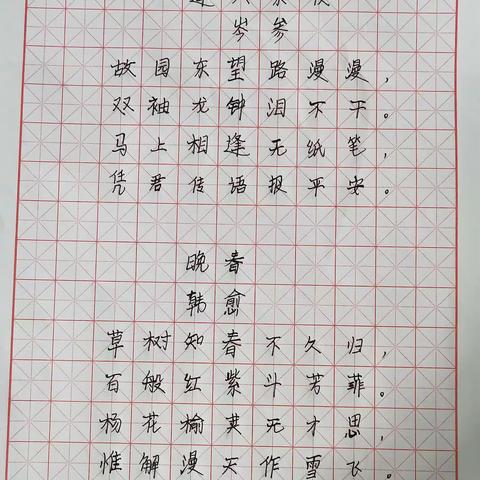 逢入京使
岑参
故园东望路漫漫，
双袖龙钟泪不干。
马上相逢无纸笔，
凭君传语报平安。
晚春
韩愈
草树知春不久归，
百般红紫斗芳菲。
杨花榆荚无才思，
惟解漫天作雪飞。